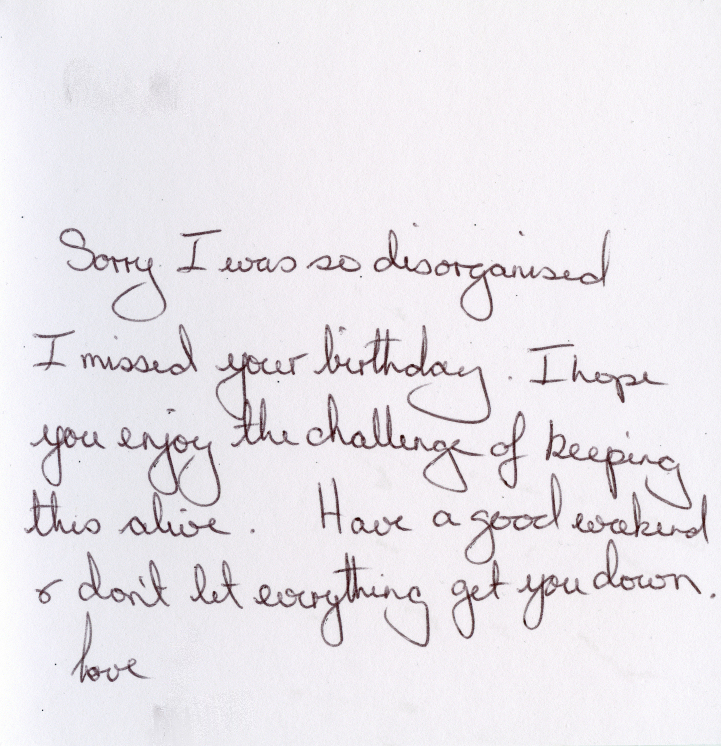 Sorry I was so disorganised
I missed your birthday. I hope
you enjoy the challenge of keeping
this alive. Have a good weekend
& don't let everything get you down.
love